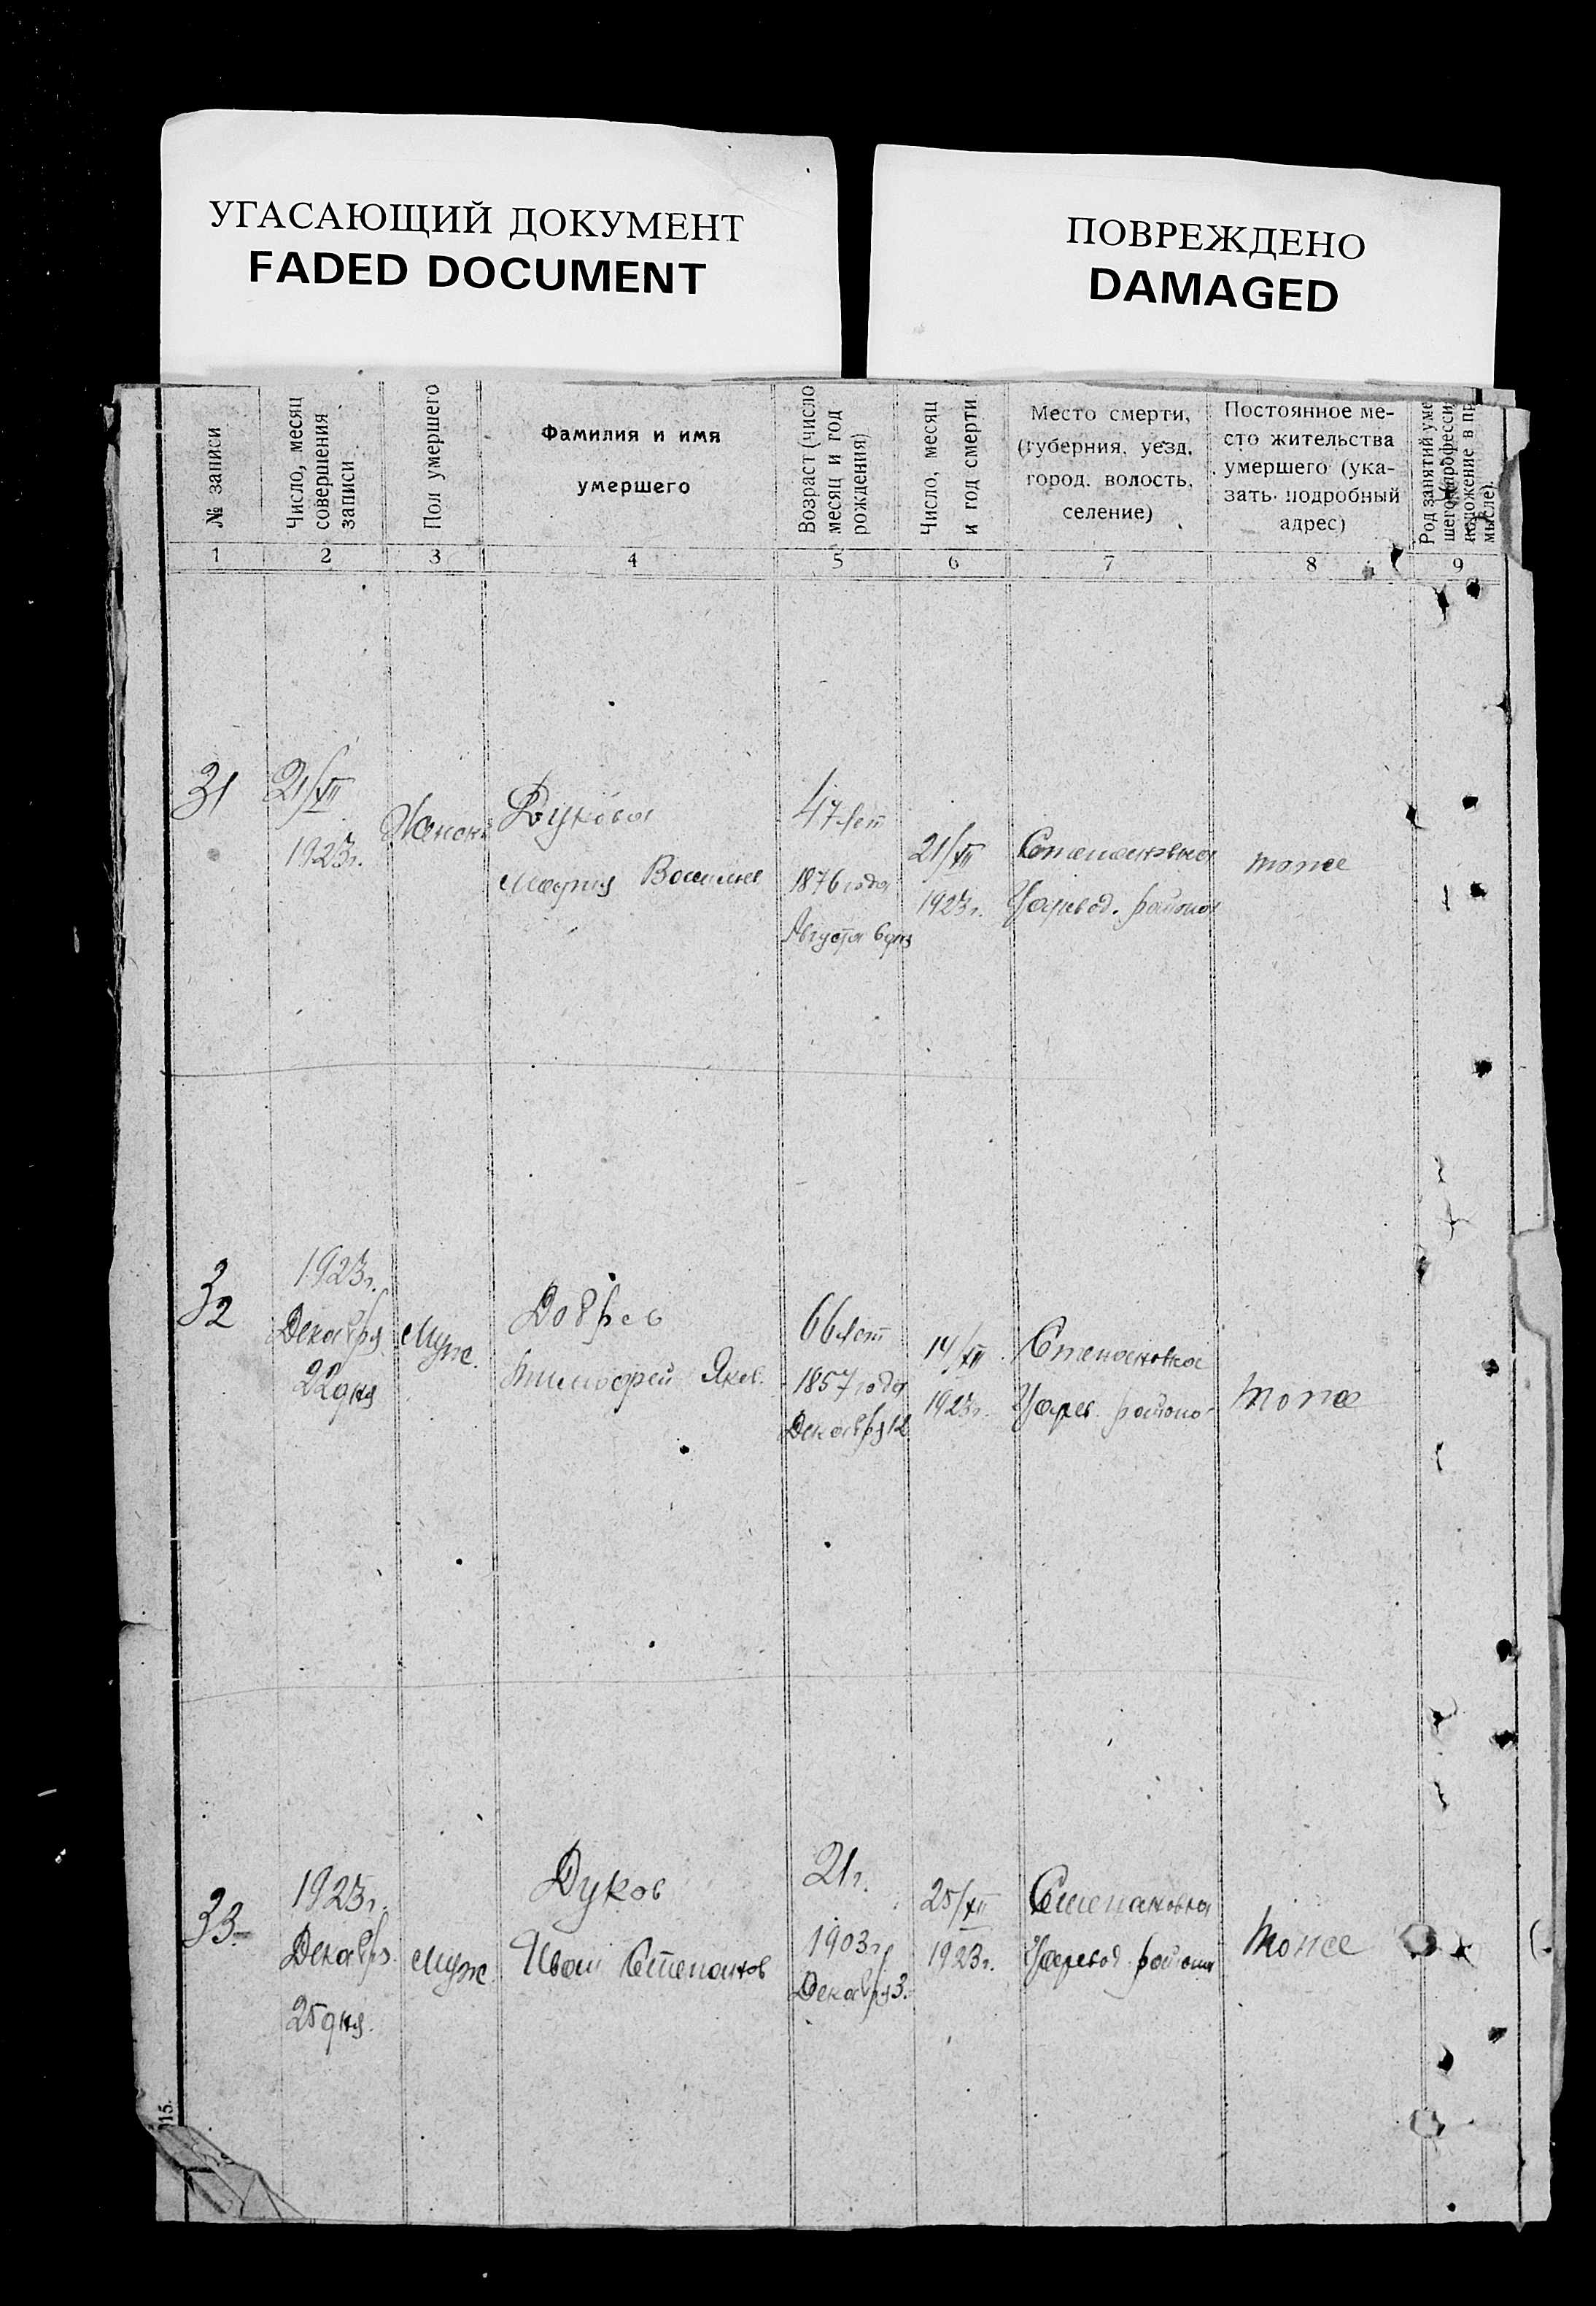 УГАСАЮЩИЙ ДОКУМЕНТ
FADED DOCUMENT
ПОВРЕЖДЕНО
DAMAGED
№ записи
Число, месяц
совершения
записи
Пол умершего
Фамилия и имя
умершего
Возраст (число
месяц и год
рождения)
Число, месяц
и год смерти
Место смерти,
(губерния, уезд,
город, волость,
селение)
Постоянное ме-
сто жительства
умершего (ука-
зать подробный
адрес)
Род занятий уме
положение в пр
мысле).
1 2 3 4 5 6 7 8 9
31
21/XII
1923г.
Женск
Дукова
Мария Василев
47 лет
1876 года
Августа 6 дня
21/XII
1923г.
Степановка
Царевод. района
тоже
32
1923г.
Декабря
22 дня
Муж.
Добрев
Тимофей Яков.
66 лет
1857 года
Декабря 12
14/XII
1923г.
Степановка
Царев. района
тоже
33
1923г.
Декабря
25 дня.
Муж.
Дуков
Иван Степанов
21г.
1903г.
Декабря 3.
25/XII
1923г.
Степановка
Царевод. района
тоже
15.